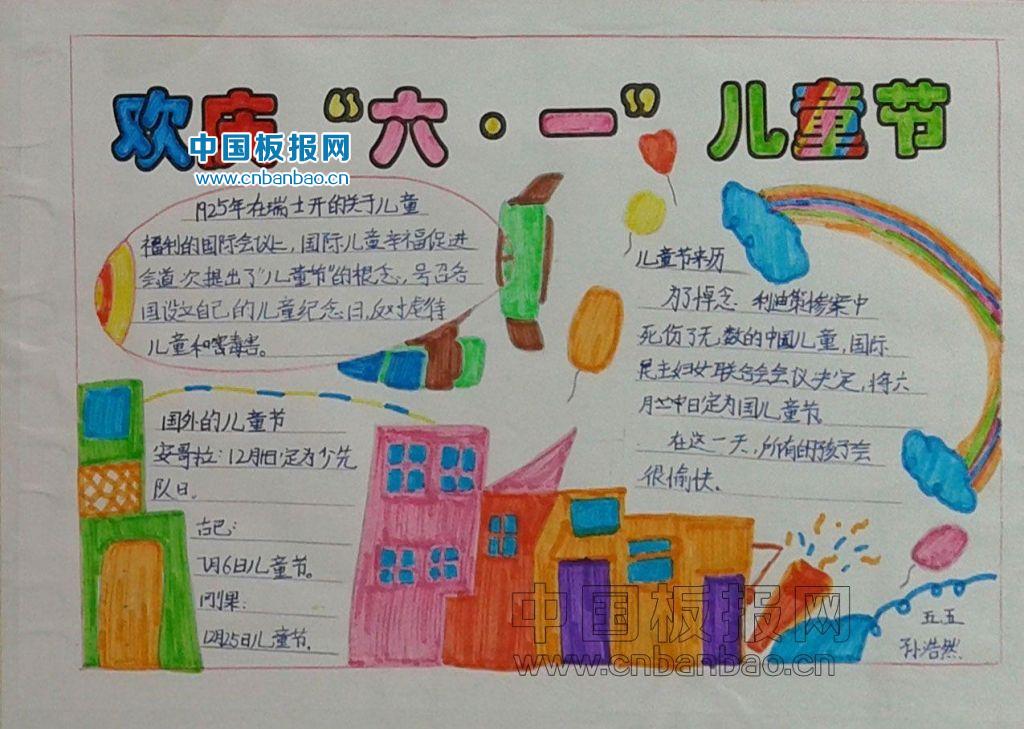 欢庆“六·一”儿童节
中国板报网
www.cnbanbao.cn
1925年在瑞士开的关于儿童
福利的国际会议上，国际儿童幸福促进
会首次提出了“儿童节”的概念，号召各
国设立自己的儿童纪念日，反对虐待
儿童和害毒害。
国外的儿童节
安哥拉：12月1日定为少先
队日。
古巴：
7月6日儿童节。
刚果：
12月25日儿童节。
儿童节来历
为了悼念 利迪策惨案中
死伤了无数的中国儿童，国际
民主妇女联合会会议决定，将六
日定为国儿童节
在这一天，所有的孩子会
很愉快。
五五
孙浩然
中国板报网
www.cnbanbao.cn